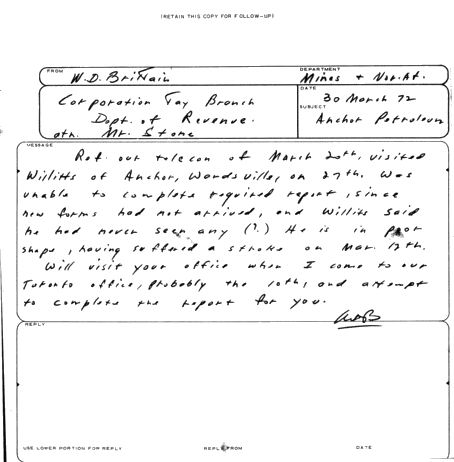 (RETAIN THIS COPY FOR FOLLOW-UP)
FROM
W.D. Brittain
DEPARTMENT
Mines + Nat.
Corporation Tax Branch
Dept. of Revenue.
attn. Mr. Stone
DATE
30 March 72
SUBJECT
Anchor Petroleum
MESSAGE
Ref. our telecon of March 20th, visited
Willitts of Anchor, Wardsville, on 27th. Was
unable to complete required report, since
new forms had not arrived, and Willits said
he had never seen any (?.) He is in poor
shape, having suffered a stroke on Mar. 17th.
Will visit your office when I come to our
Toronto office, probably the 10th, and attempt
to complete the report for you.
REPLY
USE LOWER PORTION FOR REPLY
REPLY FROM
DATE